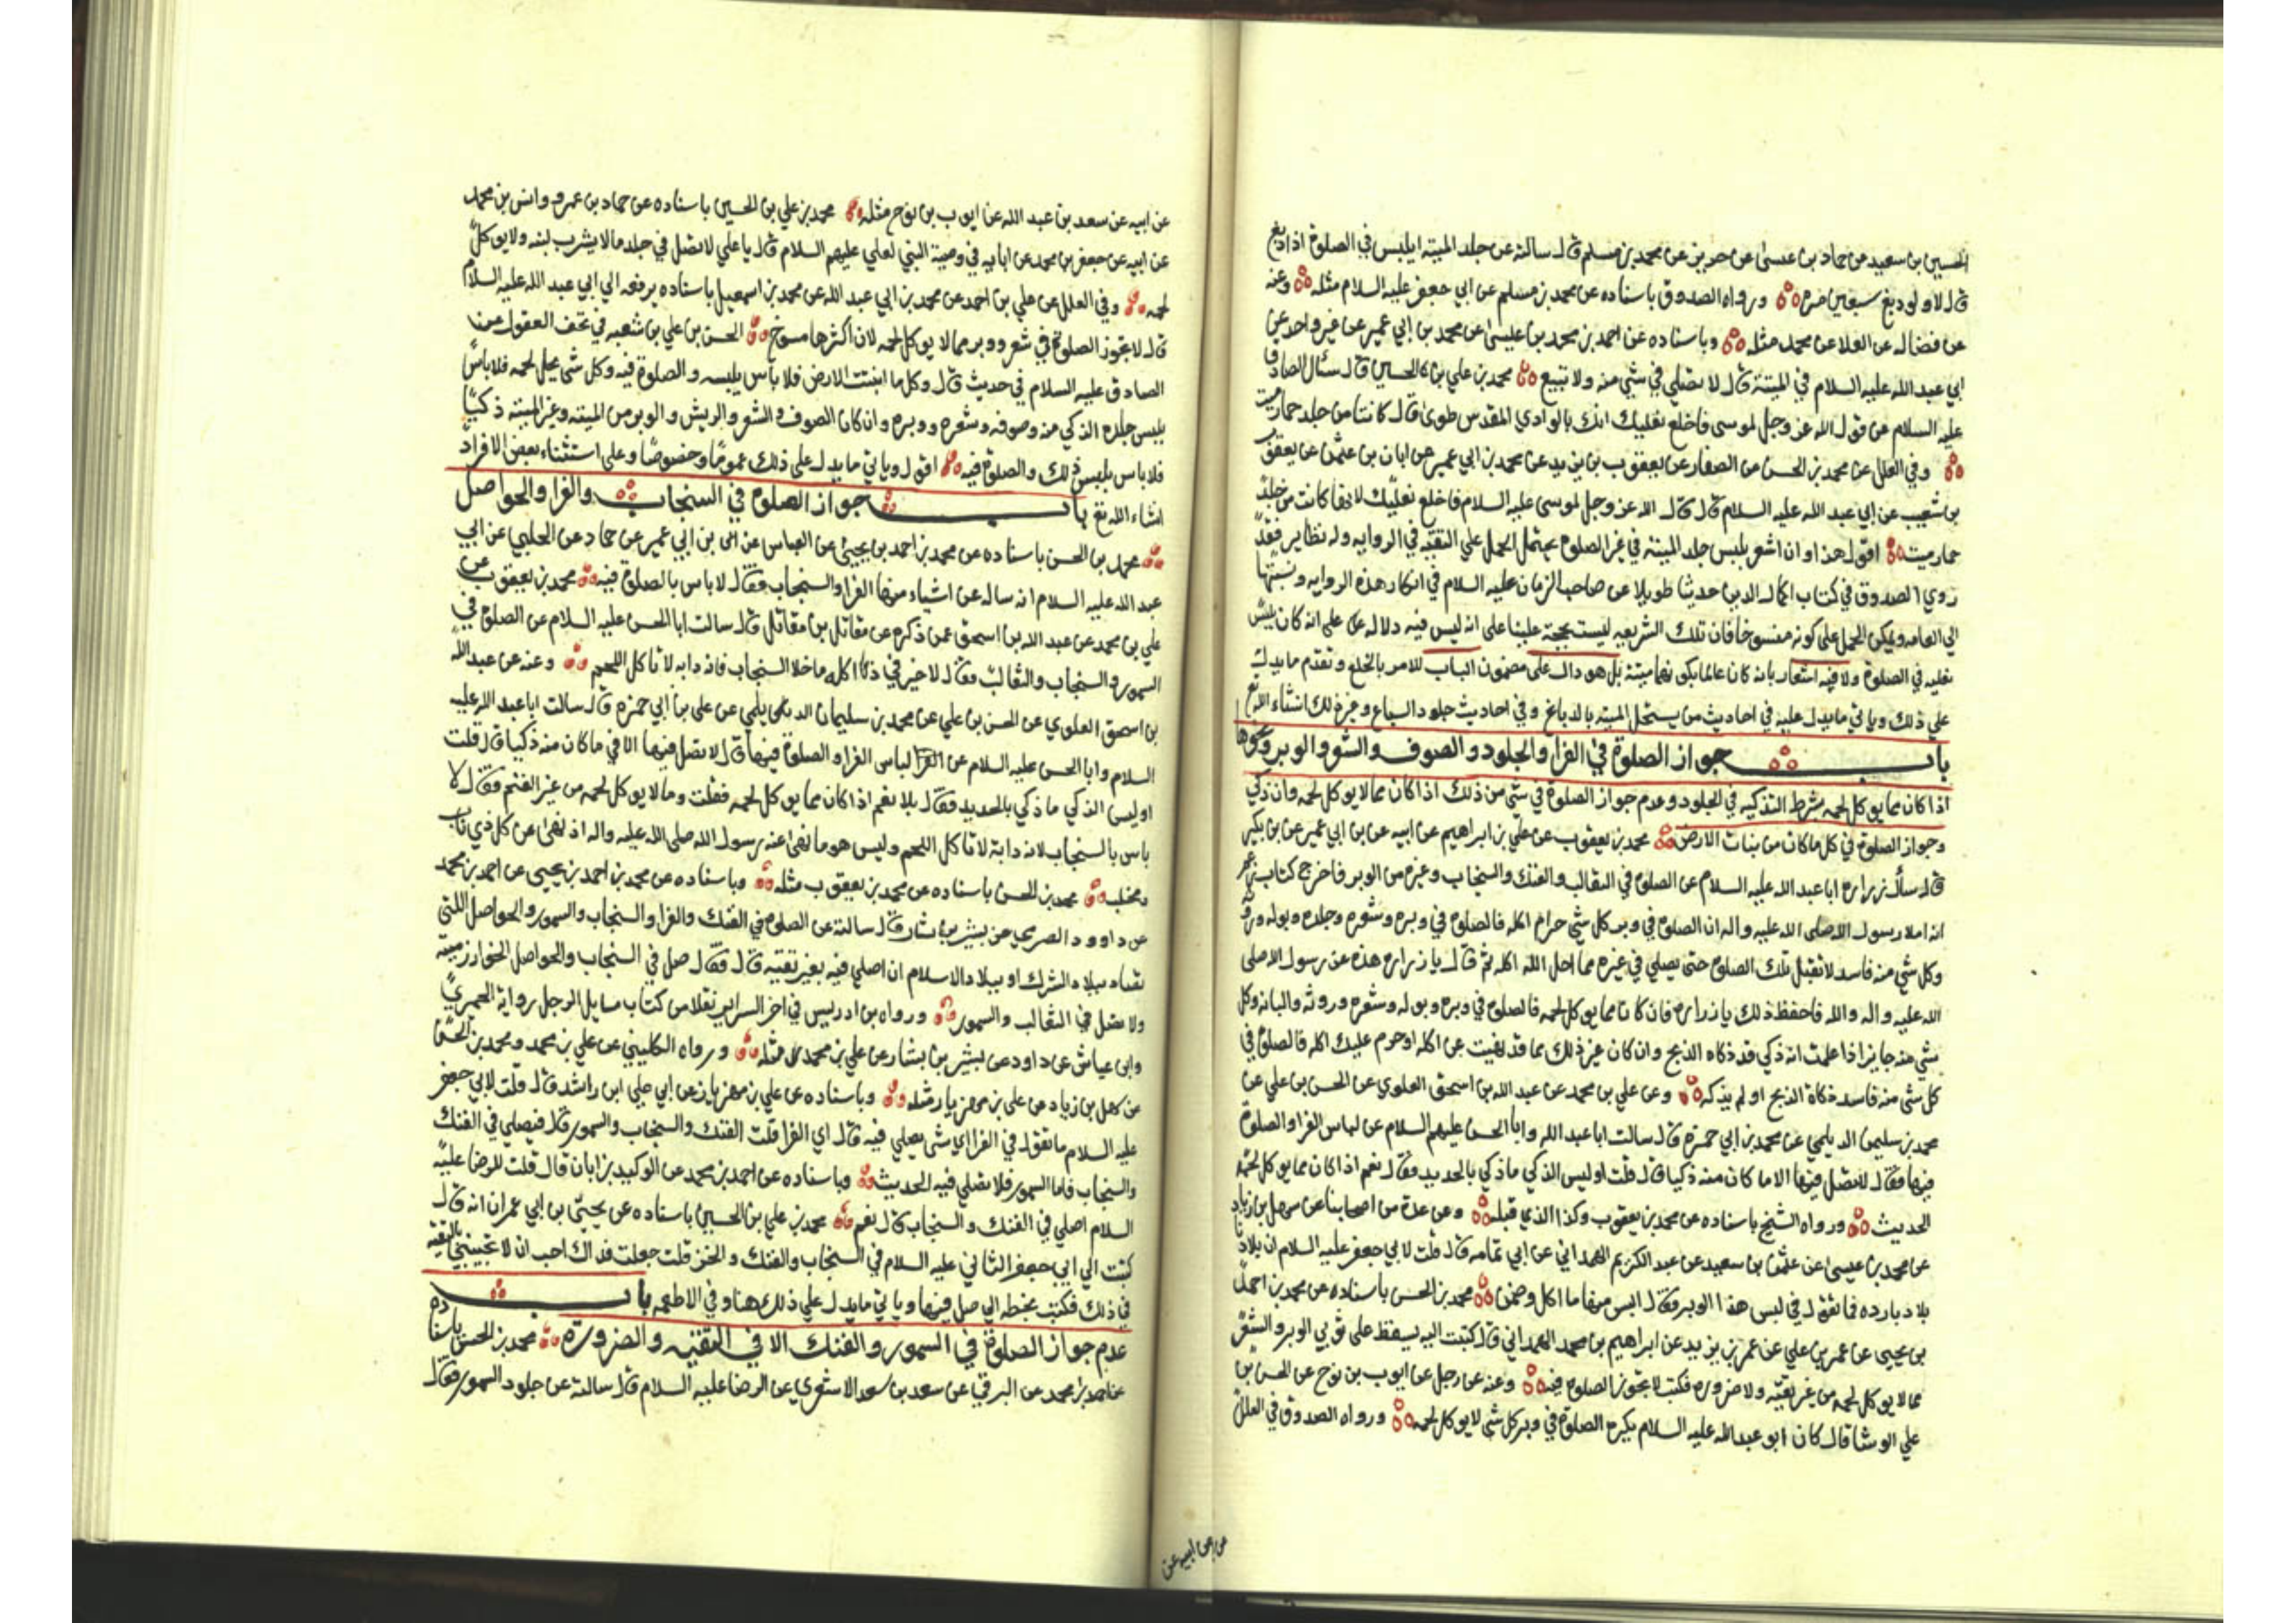 الحسين بن سعيد عن حماد بن عيسى عن حريز عن محمد بن مسلم قال سالته عن جلد الميتة ايلبس في الصلوة اذا دبغ
قال لا ولو دبغ سبعين مرة ورواه الصدوق باسناده عن محمد بن مسلم عن ابي جعفر عليه السلام مثله وعنه
عن فضاله عن العلا عن محمد مثله وباسناده عن احمد بن محمد بن عيسى عن محمد بن ابي عمير عن غير واحد عن
ابي عبد الله عليه السلام في الميتة قال لا تصلي في شي منه ولا تبيع محمد بن علي بن الحسين قال سئال الصادق
عليه السلام عن قول الله عز وجل لموسى فاخلع نعليك انك بالوادي المقدس طوى قال كانتا من جلد حمار ميت
وفي العلل عن محمد بن الحسن عن الصفار عن يعقوب بن يزيد عن محمد بن ابي عمير عن ابان بن عثمن عن يعقوب
بن شعيب عن ابي عبد الله عليه السلام قال قال الله عز وجل لموسى عليه السلام فاخلع نعليك لانها كانت من جلد
حمار ميت اقول هذا وان اشعر بلبس جلد الميتة في غير الصلوة يحتمل الحمل علي التقيه في الروايه وله نظاير فقد
روي الصدوق في كتاب اكمال الدين حديثا طويلا عن صاحب الزمان عليه السلام في انكار هذه الروايه ونسبتها
الي العامه ويمكن الحمل على كونه منسوخا فان تلك الشريعه ليست بحجة علينا على انه ليس فيه دلاله على انه كان يلبس
نعليه في الصلوة ولا فيه اشعار بانه كان عالما بكونهما ميتة بل هو دال على مضمون الباب للامر بالخلع وتقدم ما يدل
علي ذلك وياتي ما يدل عليه في احاديث من يستحل الميته بالدباغ وفي احاديث جلود السباع وغير ذلك انشاء الله
باب جواز الصلوة في الفرا والجلود والصوف والشعر والوبر ونحوها
اذا كان مما يوكل لحمه بشرط التذكيه في الجلود وعدم جواز الصلوة في شي من ذلك اذا كان مما لا يوكل لحمه وان ذكي
وجواز الصلوة في كل ما كان من نبات الارض محمد بن يعقوب عن علي بن ابراهيم عن ابيه عن بن ابي عمير عن بن بكير
قال سأل زراره ابا عبد الله عليه السلام عن الصلوة في الثعالب والفنك والسنجاب وغيره من الوبر فاخرج كتابا زعم
انه املا رسول الله صلى الله عليه واله ان الصلوة في وبر كل شي حرام اكله فالصلوة في وبره وشعره وجلده وبوله وروثه
وكل شي منه فاسد لا تقبل تلك الصلوة حتى يصلي في غيره مما احل الله اكله ثم قال يا زراره هذه عن رسول الله صلى
الله عليه واله والله فاحفظ ذلك يا زراره فان كان مما يوكل لحمه فالصلوة في وبره وبوله وشعره وروثه والبانه وكل
شي منه جايز اذا علمت انه ذكي قد ذكاه الذبح وان كان غير ذلك مما قد نهيت عن اكله او حرم عليك اكله فالصلوة في
كل شي منه فاسد ذكاه الذبح او لم يذكه وعن علي بن محمد عن عبد الله بن اسحق العلوي عن الحسن بن علي عن
محمد بن سليمن الديلمي عن محمد بن ابي حمزه قال سالت ابا عبد الله وابا الحسن عليهم السلام عن لباس الفرا والصلوة
فيها فقال لا تصل فيها الا ما كان منه ذكيا قال قلت اوليس الذكي ما ذكي بالحديد فقال نعم اذا كان مما يوكل لحمه
الحديث ورواه الشيخ باسناده عن محمد بن يعقوب وكذا الذي قبله وعن عدة من اصحابنا عن سهل بن زياد
عن محمد بن عيسى عن عثمن بن سعيد عن عبد الكريم الهمداني عن ابي تمامه قال قلت لابي جعفر عليه السلام ان بلادنا
بلاد بارده فما تقول في لبس هذا الوبر فقال البس منها ما اكل وضمن محمد بن الحسن باسناده عن محمد بن احمد
بن يحيى عن عمر بن علي عن عمر بن يزيد عن ابراهيم بن محمد الهمداني قال كتبت اليه يسقط على ثوبي الوبر والشعر
مما لا يوكل لحمه من غير تقيه ولا ضروره فكتب لا تجوز الصلوة فيه وعنه عن رجل عن ايوب بن نوح عن الحسن بن
علي الوشا قال كان ابو عبد الله عليه السلام يكره الصلوة في وبر كل شي لا يوكل لحمه ورواه الصدوق في العلل
عن ابيه عن
عن ابيه عن سعد بن عبد الله عن ايوب بن نوح مثله محمد بن علي بن الحسين باسناده عن حماد بن عمرو وانس بن محمد
عن ابيه عن جعفر بن محمد عن ابايه في وصية النبي لعلي عليهم السلام قال يا علي لا تصل في جلد ما لا يشرب لبنه ولا يوكل
لحمه وفي العلل عن علي بن احمد عن محمد بن ابي عبد الله عن محمد بن اسمعيل باسناده يرفعه الي ابي عبد الله عليه السلام
قال لا تجوز الصلوة في شعر ووبر مما لا يوكل لحمه لان اكثرها مسوخ الحسن بن علي بن شعبه في تحف العقول عن
الصادق عليه السلام في حديث قال وكل ما انبتت الارض فلا باس بلبسه والصلوة فيه وكل شي يحل لحمه فلا باس
بلبس جلده الذكي منه وصوفه وشعره ووبره وان كان الصوف والشعر والريش والوبر من الميته وغير الميته ذكيا
فلا باس بلبس ذلك والصلوة فيه اقول وياتي ما يدل على ذلك عموما وخصوصا وعلى استثناء بعض الافراد
انشاء الله تع باب جواز الصلوة في السنجاب والفرا والحواصل
محمد بن الحسن باسناده عن محمد بن احمد بن يحيى عن العباس عن بن ابي عمير عن حماد عن الحلبي عن ابي
عبد الله عليه السلام انه ساله عن اشياء منها الفرا والسنجاب فقال لا باس بالصلوة فيه محمد بن يعقوب عن
علي بن محمد عن عبد الله بن اسحق عمن ذكره عن مقاتل بن مقاتل قال سالت ابا الحسن عليه السلام عن الصلوة في
السمور والسنجاب والثعالب فقال لا خير في ذا كله ما خلا السنجاب فانه دابه لا تاكل اللحم وعنه عن عبد الله
بن اسحق العلوي عن الحسن بن علي عن محمد بن سليمان الديلمي عن علي بن ابي حمزه قال سالت ابا عبد الله عليه
السلام وابا الحسن عليه السلام عن لباس الفرا والصلوة فيها قال لا تصل فيها الا في ما كان منه ذكيا قال قلت
اوليس الذكي ما ذكي بالحديد فقال بلا نعم اذا كان مما يوكل لحمه فقلت وما لا يوكل لحمه من غير الغنم فقال لا
باس بالسنجاب لانه دابة لا تاكل اللحم وليس هو ما نهى عنه رسول الله صلى الله عليه واله اذ نهى عن كل ذي ناب
ومخلب محمد بن الحسن باسناده عن محمد بن يعقوب مثله وباسناده عن محمد بن احمد بن يحيى عن احمد بن محمد
عن داوود الصرمي عن بشير بن بشار قال سالته عن الصلوة في الفنك والفرا والسنجاب والسمور والحواصل اللتي
تصاد ببلاد الشرك او ببلاد الاسلام ان اصلي فيه بغير تقيه قال فقال صل في السنجاب والحواصل الخوارزميه
ولا تصل في الثعالب والسمور ورواه بن ادريس في اخر السراير نقلا من كتاب مسايل الرجل رواية الحميري
وابن عياش عن داود عن بشير بن بشار عن علي بن محمد مثله ورواه الكليني عن علي بن محمد ومحمد بن الحسن
عن سهل بن زياد عن علي بن مهزيار مثله وباسناده عن علي بن مهزيار عن ابي علي ابن راشد قال قلت لابي جعفر
عليه السلام ما تقول في الفرا اي شي يصلي فيه قال اي الفرا قلت الفنك والسنجاب والسمور قال فيصلي في الفنك
والسنجاب فاما السمور فلا تصلي فيه الحديث وباسناده عن احمد بن محمد عن الوليد بن ابان قال قلت للرضا عليه
السلام اصلي في الفنك والسنجاب قال نعم محمد بن علي بن الحسين باسناده عن يحيى بن ابي عمران انه قال
كتبت الي ابي جعفر الثاني عليه السلام في السنجاب والفنك والخز قلت جعلت فداك احب ان لا تجيبني بالتقيه
في ذلك فكتب بخطه الي صل فيها وياتي ما يدل علي ذلك هنا وفي الاطعمه باب
عدم جواز الصلوة في السمور والفنك الا في التقيه والضرورة محمد بن الحسن باسناده
عن احمد بن محمد عن البرقي عن سعد بن سعد الاشعري عن الرضا عليه السلام قال سالته عن جلود السمور فقال